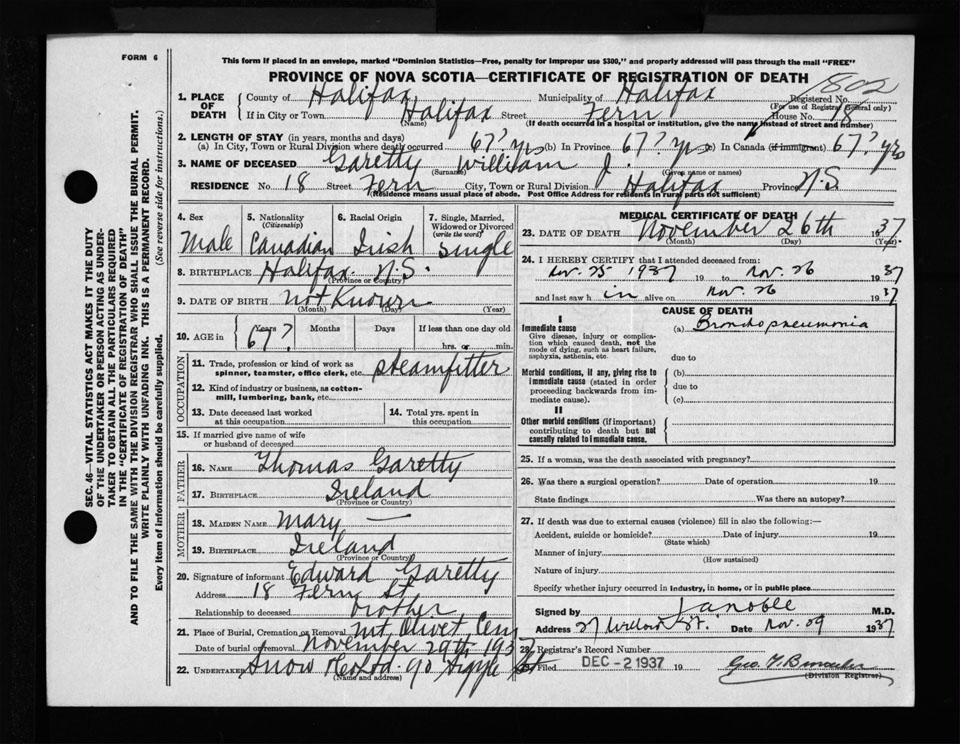 FORM 6
This form if placed in an envelope, marked "Dominion Statistics—Free, penalty for improper use $300," and properly addressed will pass through the mail "FREE"
PROVINCE OF NOVA SCOTIA—CERTIFICATE OF REGISTRATION OF DEATH
1. PLACE OF DEATH
County of Halifax Municipality of Halifax Registered No. 1802
(For use of Registrar General only)
If in City or Town Halifax Street Fern House No. 18
(Name) (If death occurred in a hospital or institution, give the name instead of street and number)
2. LENGTH OF STAY (in years, months and days)
(a) In City, Town or Rural Division where death occurred 67? yrs (b) In Province 67? yrs (c) In Canada (if immigrant) 67? yrs
3. NAME OF DECEASED Garetty William J.
(Surname) (Given name or names)
RESIDENCE No. 18 Street Fern City, Town or Rural Division Halifax Province N.S.
(Residence means usual place of abode. Post Office Address for residents in rural parts not sufficient)
4. Sex Male
5. Nationality (Citizenship) Canadian
6. Racial Origin Irish
7. Single, Married, Widowed or Divorced (write the word) Single
8. BIRTHPLACE Halifax. N.S.
(Province or Country)
9. DATE OF BIRTH Not Known
(Month) (Day) (Year)
10. AGE in Years Months Days If less than one day old
67? hrs. or min.
OCCUPATION
11. Trade, profession or kind of work as spinner, teamster, office clerk, etc. Steamfitter
12. Kind of industry or business, as cotton-mill, lumbering, bank, etc.
13. Date deceased last worked at this occupation
14. Total yrs. spent in this occupation
15. If married give name of wife or husband of deceased
FATHER
16. NAME Thomas Garetty
17. BIRTHPLACE Ireland
(Province or Country)
MOTHER
18. MAIDEN NAME Mary —
19. BIRTHPLACE Ireland
(Province or Country)
20. Signature of informant Edward Garetty
Address 18 Fern St.
Relationship to deceased brother
21. Place of Burial, Cremation or Removal Mt. Olivet Cem
Date of burial or removal November 29th 1937
22. UNDERTAKER Snow & Co Ltd. 90 Argyle St
(Name and address)
MEDICAL CERTIFICATE OF DEATH
23. DATE OF DEATH November 26th 1937
(Month) (Day) (Year)
24. I HEREBY CERTIFY that I attended deceased from:
Nov. 25 1937 19 to Nov. 26 1937
and last saw h im alive on Nov. 26 1937
CAUSE OF DEATH
I
Immediate cause (a) Bronchopneumonia
Give disease, injury or complication which caused death, not the mode of dying, such as heart failure, asphyxia, asthenia, etc.
due to
Morbid conditions, if any, giving rise to immediate cause (stated in order proceeding backwards from immediate cause).
(b)
due to
(c)
II
Other morbid conditions (if important) contributing to death but not causally related to immediate cause.
25. If a woman, was the death associated with pregnancy?
26. Was there a surgical operation? Date of operation 19
State findings Was there an autopsy?
27. If death was due to external causes (violence) fill in also the following:—
Accident, suicide or homicide? Date of injury 19
(State which)
Manner of injury
(How sustained)
Nature of injury
Specify whether injury occurred in industry, in home, or in public place
Signed by M.D.
Address 27 Willow St. Date Nov. 29 1937
28. Registrar's Record Number
Filed DEC - 2 1937 19
(Division Registrar)
SEC. 46—VITAL STATISTICS ACT MAKES IT THE DUTY
OF THE UNDERTAKER OR PERSON ACTING AS UNDER-
TAKER TO OBTAIN ALL THE PARTICULARS REQUIRED
IN THE "CERTIFICATE OF REGISTRATION OF DEATH"
AND TO FILE THE SAME WITH THE DIVISION REGISTRAR WHO SHALL ISSUE THE BURIAL PERMIT.
WRITE PLAINLY WITH UNFADING INK. THIS IS A PERMANENT RECORD.
Every item of information should be carefully supplied. (See reverse side for instructions.)